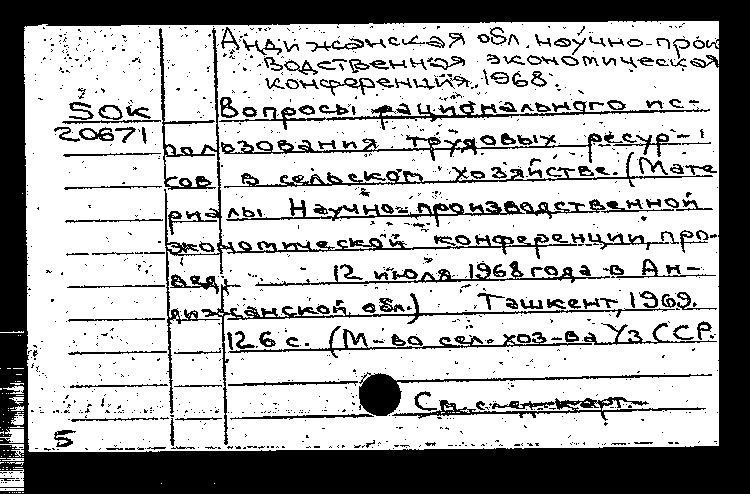 Андижанская обл. научно-произ
водственная экономическая
конференция, 1968.
SOK
20671
Вопросы рационального ис-
пользования трудовых ресур-
сов в сельском хозяйстве. (Мате
риалы Научно-производственной
экономической конференции, про-
вед. 12 июля 1968 года в Ан-
дижанской обл.) Ташкент, 1969.
126 с. (М-во сел. хоз-ва УзССР.
См. след. карт.
5